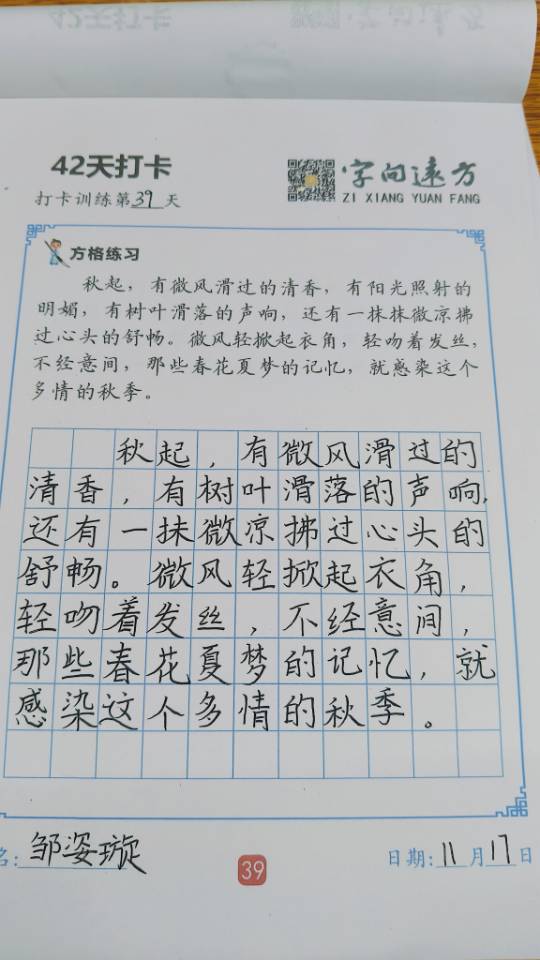 42天打卡
字向远方
ZI XIANG YUAN FANG
打卡训练第39天
方格练习
秋起，有微风滑过的清香，有阳光照射的
明媚，有树叶滑落的声响，还有一抹抹微凉拂
过心头的舒畅。微风轻掀起衣角，轻吻着发丝，
不经意间，那些春花夏梦的记忆，就感染这个
多情的秋季。
秋起，有微风滑过的
清香，有树叶滑落的声响，
还有一抹微凉拂过心头的
舒畅。微风轻掀起衣角，
轻吻着发丝，不经意间，
那些春花夏梦的记忆，就
感染这个多情的秋季。
名：邹姿璇
39
日期：11月17日